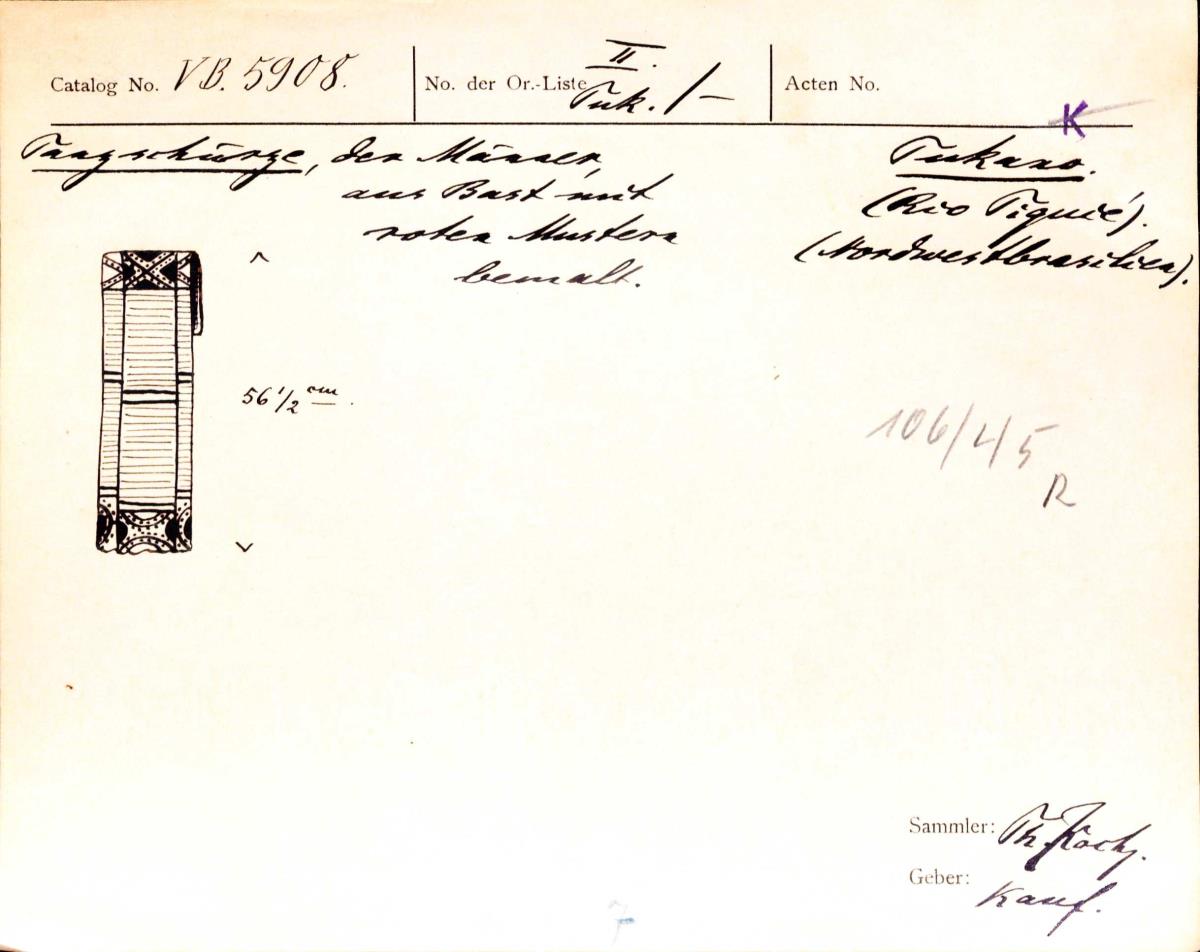 Catalog No. VB. 5908.
No. der Or.-Liste II. Tuk. 1
Acten No.
K
Tanzschürze, der Männer,
aus Bast mit
roten Mustern
bemalt.
Tukano.
(Rio Tiquié).
(Nordwestbrasilien).
56 1/2 cm.
106/4/5
R
Sammler: Th. Koch.
Geber: Kauf.